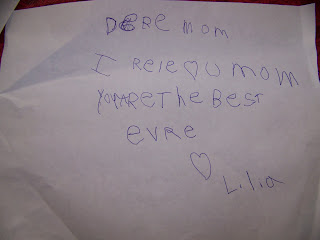 DERE MOM
I RELE ♡ U MOM
YOU ARE THE BEST
EVRE
♡
Lilia